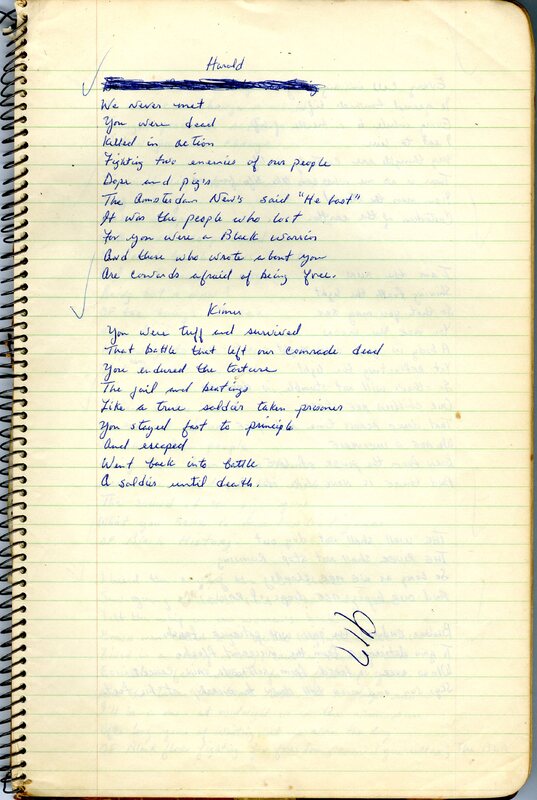 Harold
We Never met
You were dead
Killed in action
Fighting two enemies of our people
Dope and pigs
The Amsterdam News said "He lost"
It was the people who lost
For you were a Black warrior
And those who wrote about you
Are cowards afraid of being free.
Kimu
You were tuff and survived
That battle that left our comrade dead
You endured the torture
The jail and beatings
Like a true soldier taken prisoner
You stayed fast to principle
And escaped
Went back into battle
A soldier until death.
917